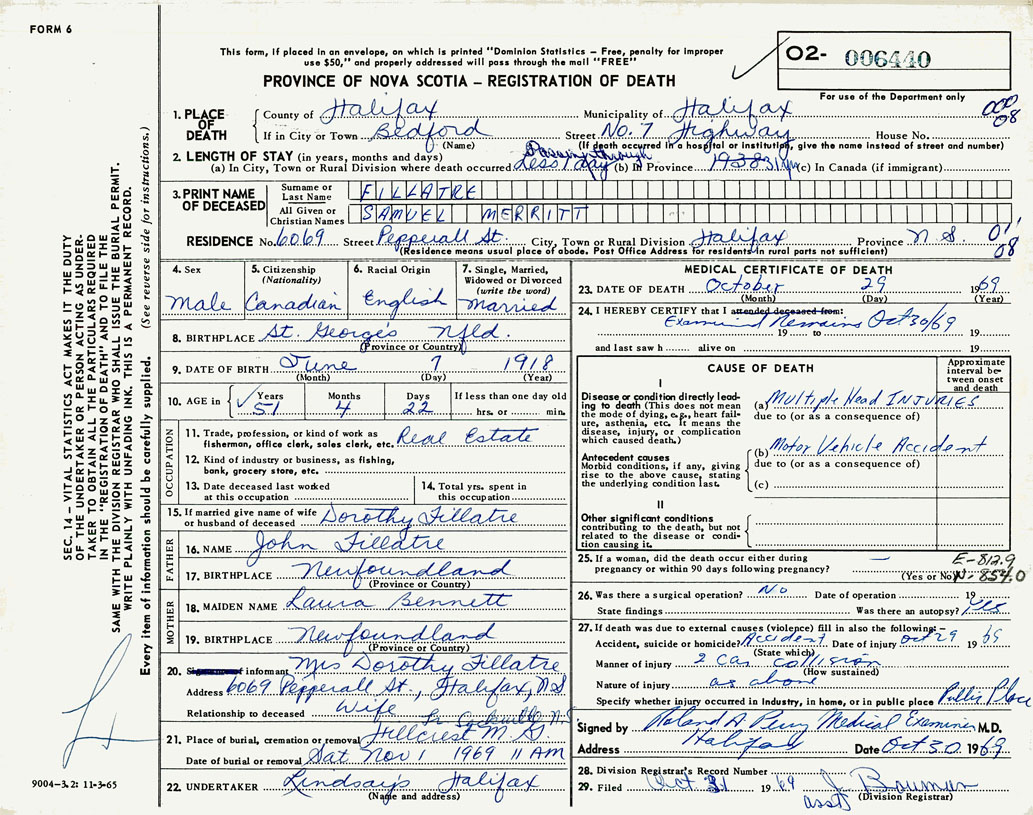 FORM 6
This form, if placed in an envelope, on which is printed "Dominion Statistics – Free, penalty for improper
use $50," and properly addressed will pass through the mail "FREE"
O2- 006440
For use of the Department only
PROVINCE OF NOVA SCOTIA – REGISTRATION OF DEATH
1. PLACE OF DEATH { County of Halifax Municipality of Halifax 08
If in City or Town Bedford Street No. 7 Highway House No.
(Name) (If death occurred in a hospital or institution, give the name instead of street and number)
2. LENGTH OF STAY (in years, months and days) Passing through
(a) In City, Town or Rural Division where death occurred Less 1 day (b) In Province 1938 (c) In Canada (if immigrant)
3. PRINT NAME OF DECEASED Surname or Last Name FILLATRE
All Given or Christian Names SAMUEL MERRITT
RESIDENCE No. 6069 Street Pepperall St. City, Town or Rural Division Halifax Province N.S. 08
(Residence means usual place of abode. Post Office Address for residents in rural parts not sufficient)
4. Sex Male
5. Citizenship (Nationality) Canadian
6. Racial Origin English
7. Single, Married, Widowed or Divorced (write the word) Married
8. BIRTHPLACE St. George's Nfld.
(Province or Country)
9. DATE OF BIRTH June 7 1918
(Month) (Day) (Year)
10. AGE in { Years Months Days If less than one day old
51 4 22 hrs. or min.
OCCUPATION
11. Trade, profession, or kind of work as
fisherman, office clerk, sales clerk, etc. Real Estate
12. Kind of industry or business, as fishing,
bank, grocery store, etc.
13. Date deceased last worked
at this occupation
14. Total yrs. spent in
this occupation
15. If married give name of wife
or husband of deceased Dorothy Fillatre
FATHER
16. NAME John Fillatre
17. BIRTHPLACE Newfoundland
(Province or Country)
MOTHER
18. MAIDEN NAME Laura Bennett
19. BIRTHPLACE Newfoundland
(Province or Country)
20. of informant Mrs Dorothy Fillatre
Address 6069 Pepperall St., Halifax, N.S.
Relationship to deceased Wife
21. Place of burial, cremation or removal Hillcrest M. G.
Date of burial or removal Sat Nov 1 1969 11 AM
22. UNDERTAKER Lindsay's Halifax
(Name and address)
MEDICAL CERTIFICATE OF DEATH
23. DATE OF DEATH October 29 1969
(Month) (Day) (Year)
24. I HEREBY CERTIFY that I attended deceased from:
Examined Remains Oct 30/69
19 to 19
and last saw h alive on 19
CAUSE OF DEATH
Approximate interval between onset and death
I
Disease or condition directly leading to death (This does not mean the mode of dying, e.g., heart failure, asthenia, etc. It means the disease, injury, or complication which caused death.)
(a) Multiple Head INJURIES
due to (or as a consequence of)
Antecedent causes
Morbid conditions, if any, giving rise to the above cause, stating the underlying condition last.
(b) Motor Vehicle Accident
due to (or as a consequence of)
(c)
II
Other significant conditions
contributing to the death, but not related to the disease or condition causing it.
25. If a woman, did the death occur either during
pregnancy or within 90 days following pregnancy? —
(Yes or No)
E-812.9
N-854.0
26. Was there a surgical operation? No Date of operation 19
State findings Was there an autopsy? Yes
27. If death was due to external causes (violence) fill in also the following:–
Accident, suicide or homicide? Accident Date of injury Oct 29 1969
(State which)
Manner of injury 2 car collision
(How sustained)
Nature of injury as above
Specify whether injury occurred in Industry, in home, or in public place Public Place
Signed by Roland A Perry Medical Examiner M.D.
Address Halifax Date Oct 30 1969
28. Division Registrar's Record Number
29. Filed Oct 31 1969 J. Bauman
asst (Division Registrar)
SEC. 14 – VITAL STATISTICS ACT MAKES IT THE DUTY
OF THE UNDERTAKER OR PERSON ACTING AS UNDER-
TAKER TO OBTAIN ALL THE PARTICULARS REQUIRED
IN THE "REGISTRATION OF DEATH" AND TO FILE THE
SAME WITH THE DIVISION REGISTRAR WHO SHALL ISSUE THE BURIAL PERMIT.
WRITE PLAINLY WITH UNFADING INK. THIS IS A PERMANENT RECORD.
Every item of information should be carefully supplied. (See reverse side for instructions.)
9004–3.2: 11-3-65